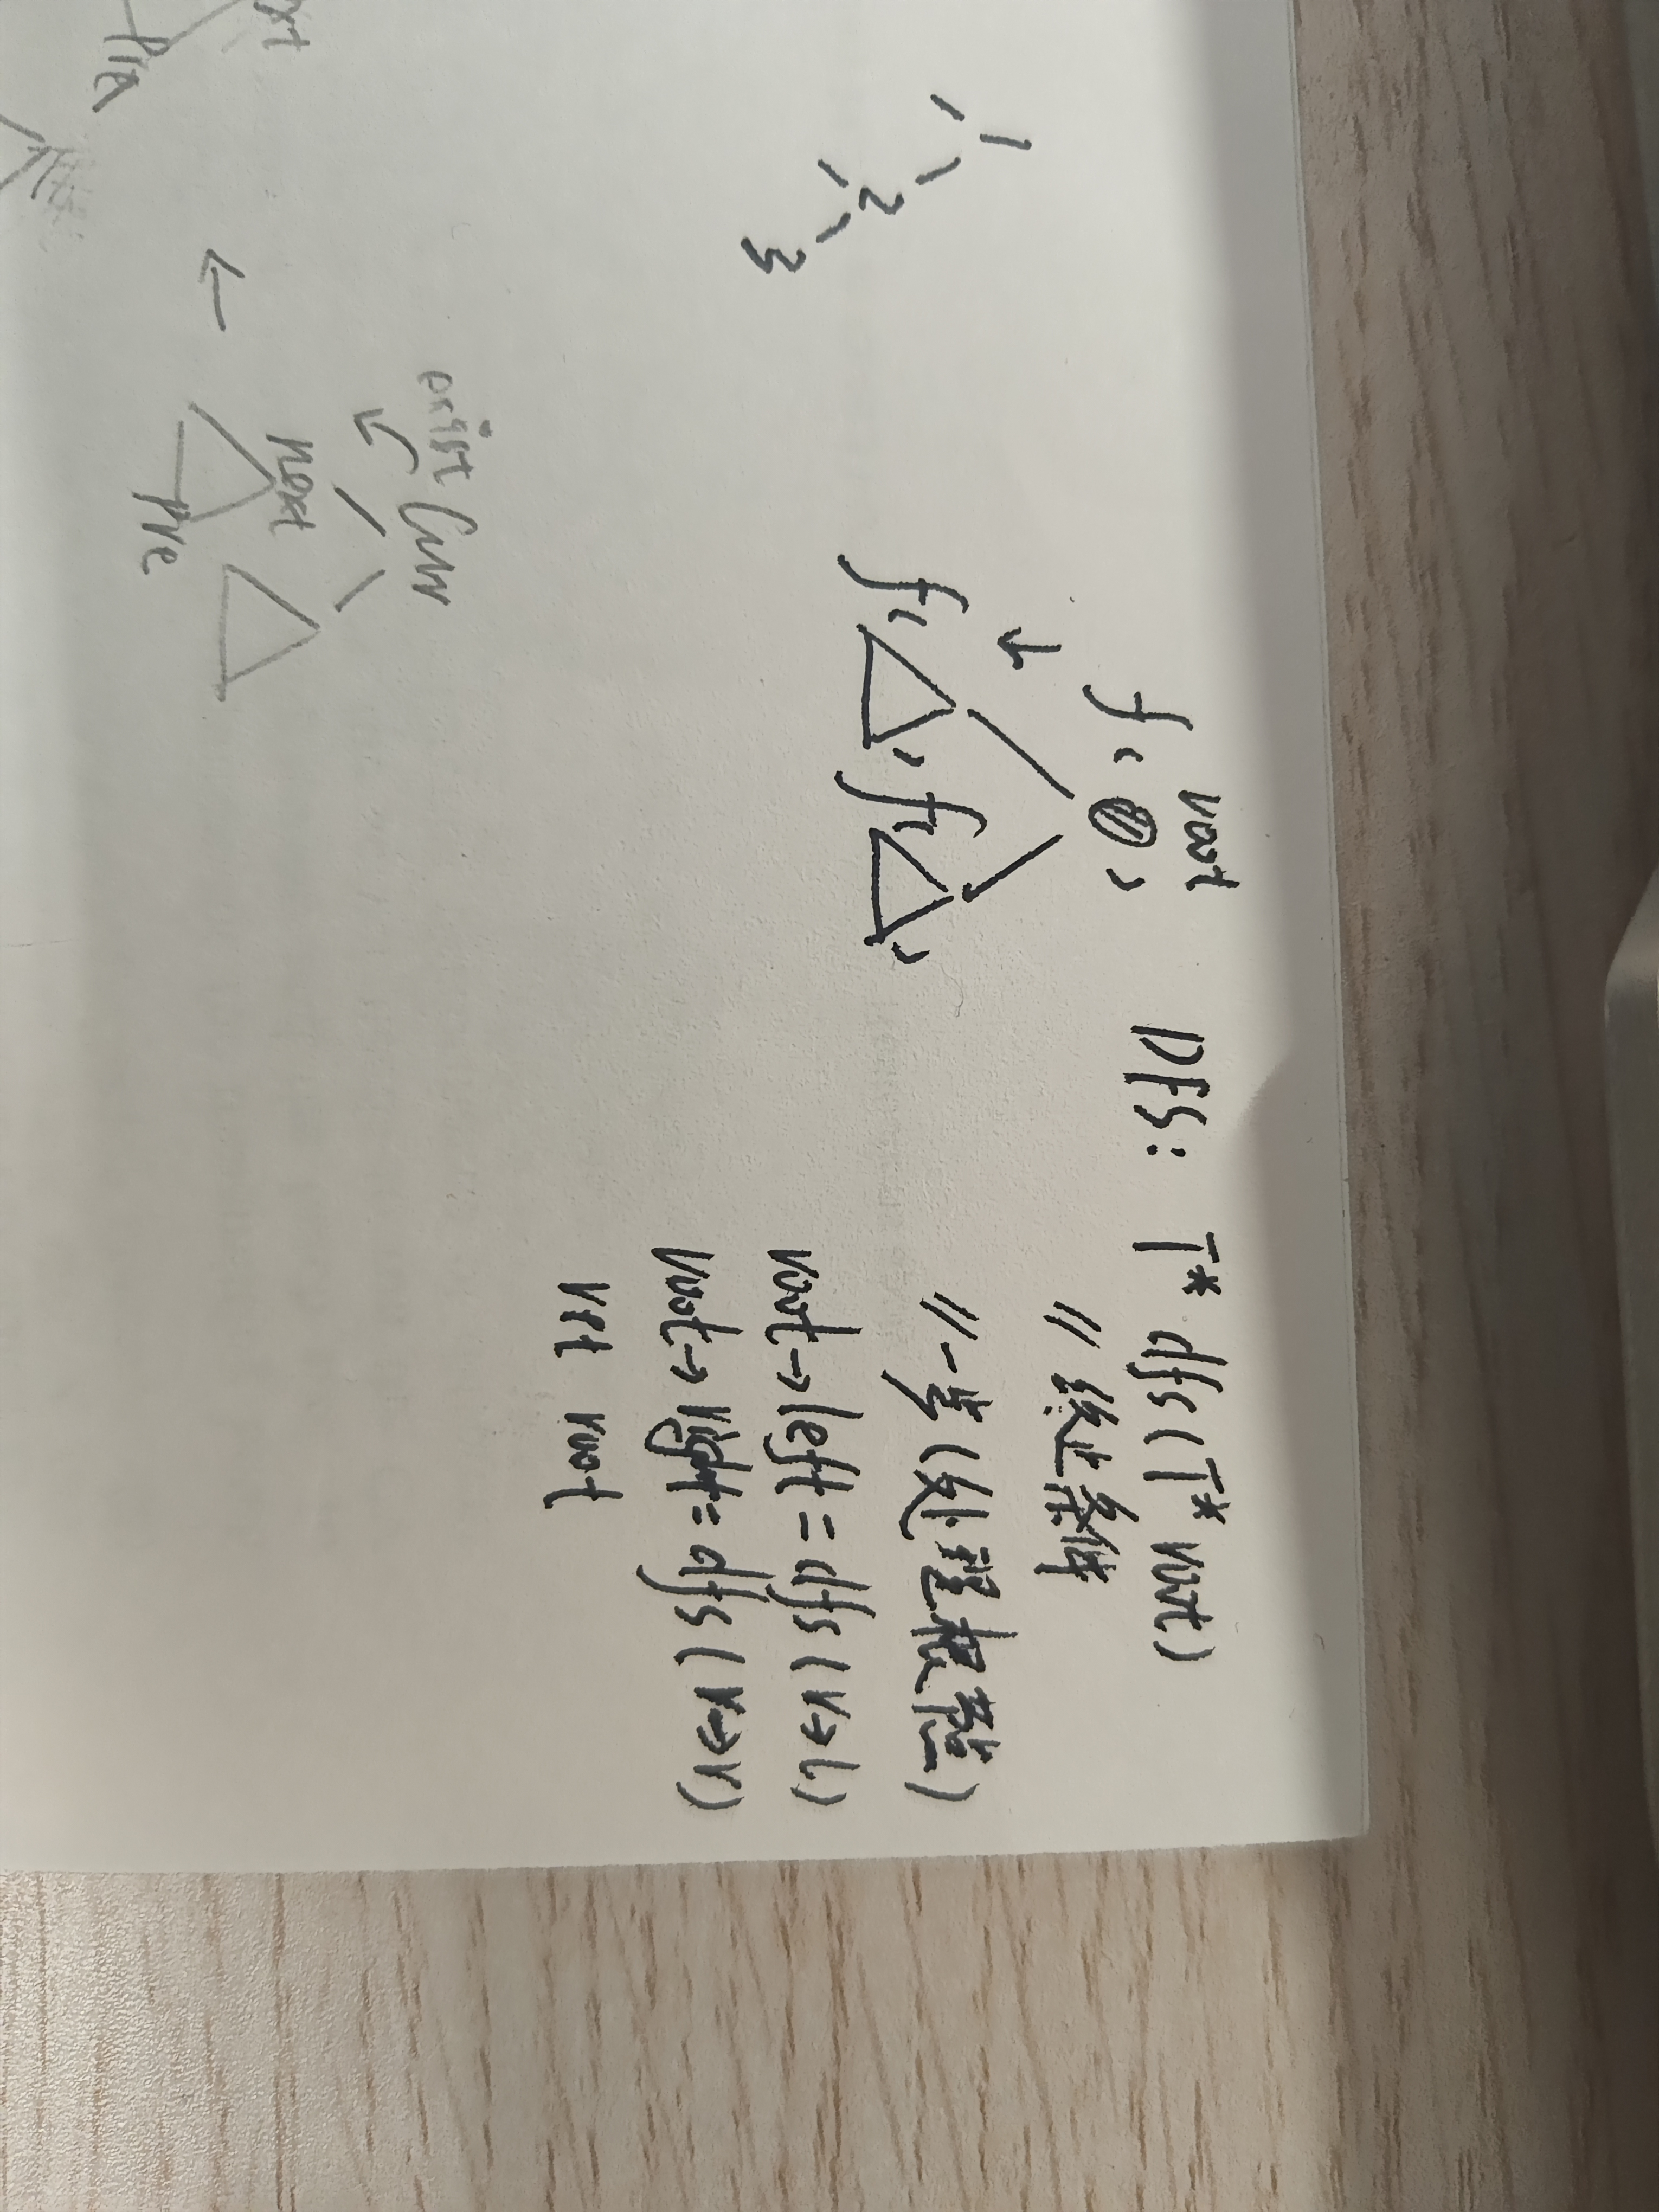 root
f( )
f( ) f( )
DFS: T* dfs(T* root)
// 终止条件
// 一步(处理根节点)
root→left = dfs(r→l)
root→right = dfs(r→r)
ret root
1
2
3
exist Curr
next
Pre
xt
Pre